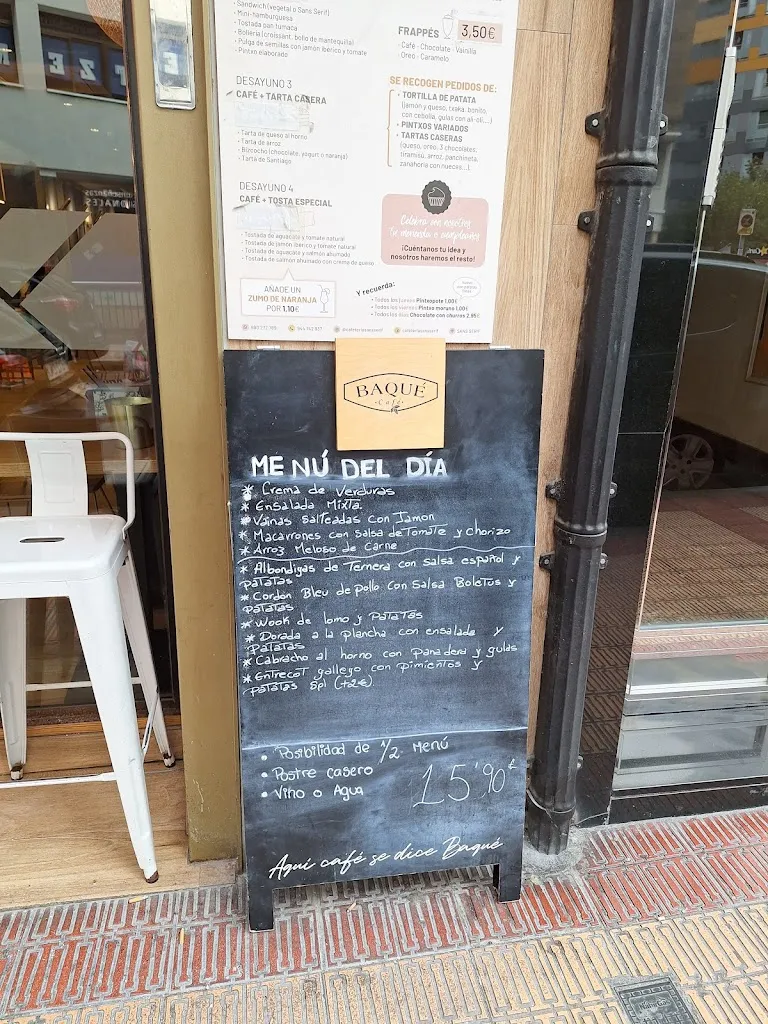 Sandwich (vegetal o Sans Serif)
• Mini-hamburguesa
• Tostada pan tumaca
• Bollería (croissant, bollo de mantequilla)
• Pulga de semillas con jamón ibérico y tomate
• Pintxo elaborado
DESAYUNO 3
CAFÉ + TARTA CASERA
• Tarta de queso al horno
• Tarta de arroz
• Bizcocho (chocolate, yogurt o naranja)
• Tarta de Santiago
DESAYUNO 4
CAFÉ + TOSTA ESPECIAL
• Tostada de aguacate y tomate natural
• Tostada de jamón ibérico y tomate natural
• Tostada de aguacate y salmón ahumado
• Tostada de salmón ahumado con crema de queso
AÑADE UN
ZUMO DE NARANJA
POR 1,10€
FRAPPÉS 3,50€
• Café • Chocolate • Vainilla
• Oreo • Caramelo
SE RECOGEN PEDIDOS DE:
• TORTILLA DE PATATA
(jamón y queso, txaka, bonito,
con cebolla, gulas con ali-oli,...)
• PINTXOS VARIADOS
• TARTAS CASERAS
(queso, oreo, 3 chocolates,
tiramisú, arroz, panchineta,
zanahoria con nueces...)
Celebra con nosotros
tu merienda o cumpleaños
¡Cuéntanos tu idea y
nosotros haremos el resto!
Y recuerda:
• Todos los jueves Pintxopote 1,00€
• Todos los viernes Pintxo moruno 1,00€
• Todos los días Chocolate con churros 2,95€
SANS SERIF
BAQUÉ
Café
MENÚ DEL DÍA
* Crema de Verduras
* Ensalada Mixta
* Vainas Salteadas con Jamon
* Macarrones con Salsa de Tomate y chorizo
* Arroz Meloso de Carne
* Albondigas de Ternera con salsa español y
patatas
* Cordon Bleu de pollo con Salsa Boletus y
patatas
* Wook de lomo y Patatas
* Dorada a la plancha con ensalada y
Patatas
* Cabracho al horno con panadera y gulas
* Entrecot gallego con pimientos y
patatas Spl (+2€)
• Posibilidad de 1/2 Menú
• Postre casero
• Vino o Agua
15'90€
Aquí café se dice Baqué